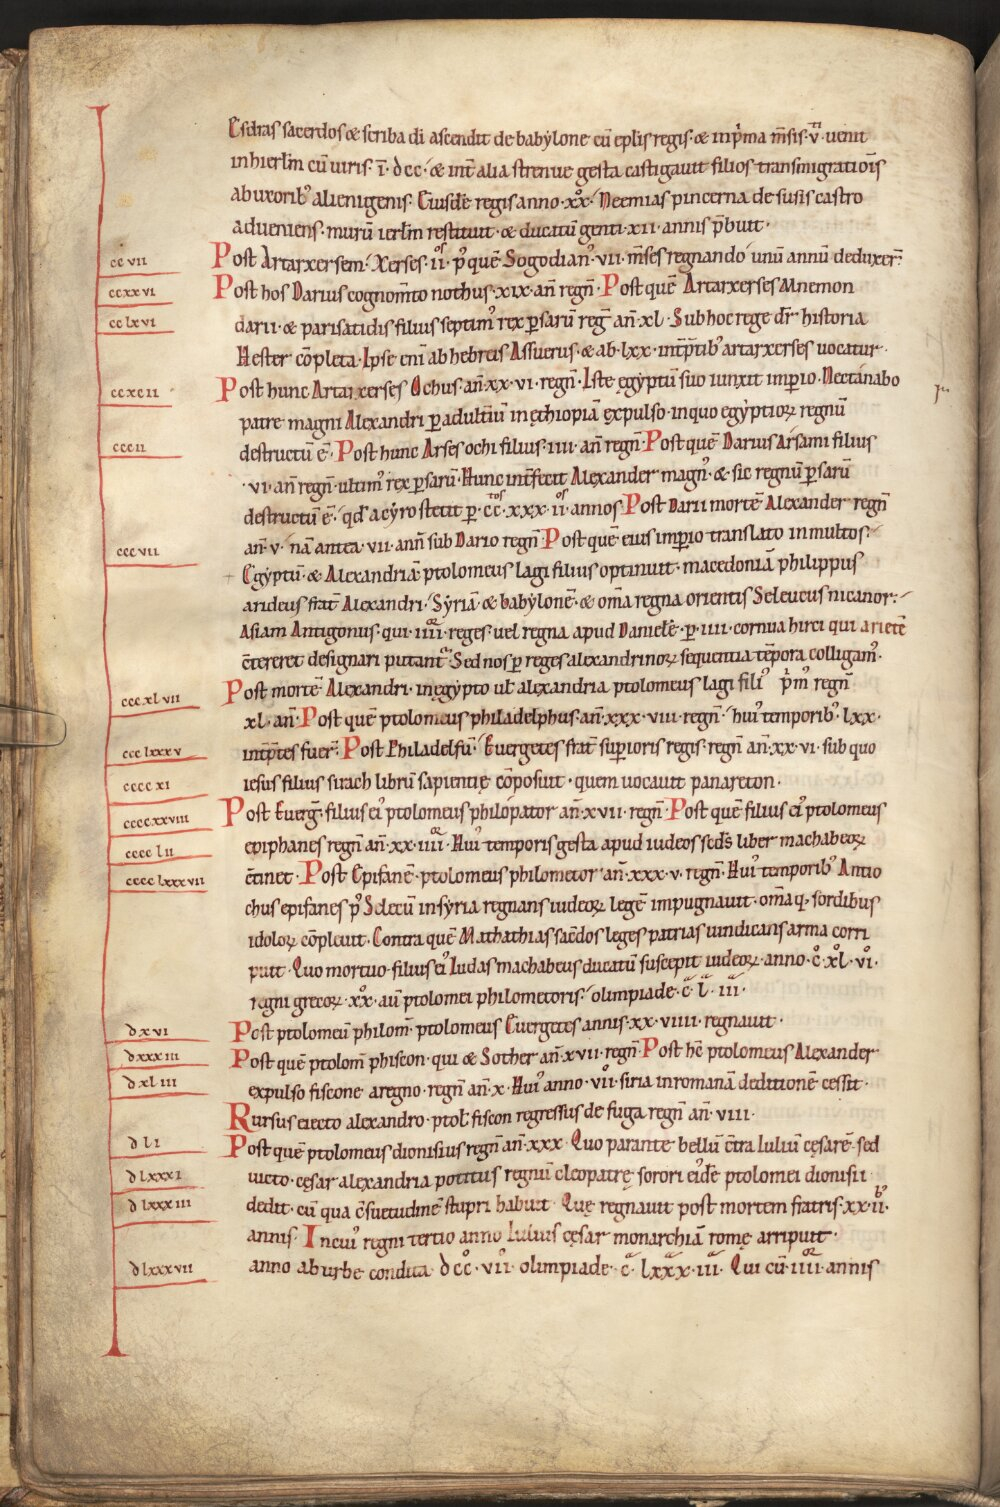 Esdras sacerdos & scriba dī ascendit de babẏlone cū eplīs regis· & inp̓ma m̄sis·v·ͣ uenit
inhierl̄m cū uiris·ī·dcc·́ & int̄ alia strenue gesta castigauit filios transmigratiōis
abuxorib; alienigenis· Eiusdē regis anno·xxͦ·́ Neemias pincerna de susis castro
adueniens·murū ierl̄m restituit·& ducatū genti·xii·annis p̄buit·
cc vii
Post Artarxersem·́ Xerses·iiͦˢ·pꝰ quē Sogodianꝰ·vii·m̄ses regnando unū annū deduxer̄·
ccxxvi
Post hos Darius cognom̄to nothus·xix·an̄ regn̄·Post quē Artarxerses Mnemon
cclxvi
darii·& parisatidis filius septimꝰ rex ꝑsarū reḡ an̄ xl·Sub hoc rege dr̄ historia
Hester cōpleta·Ipse eni ab hebreis Assuerus·& ab·lxx·int̄p̄tibꝰ artarxerses uocatur·
ccxcii
Post hunc Artarxerses Ochus·an̄·xx·vi·regn̄·Iste ęgẏptū suo iunxit imꝑio·Nectanabo
patre magni Alexandri ꝑ adult̄iū in ęthiopiā ęxpulso·in quo egẏptioꝝ regnū
cccii
destructū ē·Post hunc Arses ochi filius·iiii·an̄ regn̄·Post quē Darius Arsami filius
·vi·an̄ regn̄·ultimꝰ rex ꝑsarū·Hunc int̄fecit Alexander magnꝰ·& sic regnū ꝑsarū
destructū ē·́ qd̄ a cẏro stetit ꝑ·cc·ͭͦˢxxx·ii·ͦˢannos·Post Darii mortē Alexander regn̄
cccvii
an̄·v·nā antea·vii·ann̄ sub Dario regn̄·Post quē eius imꝑio translato in multos·́
Egẏptū·& Alexandriā ptolomeus lagi filius optinuit·macedoniā philippus
arideus frat̄ Alexandri·́ Sẏriā & babẏlonē·& om̄a regna orientis Seleucus nicanor·́
Asiam Antigonus·qui·iiii·ᵒʳreges·uel regna apud Danielē·ꝑ·iiii·cornua hirci qui arietē
c̄tereret designari putant̄·Sed nos ꝑ reges alexandrinoꝝ sequentia tēpora colligamꝰ·
cccxlvii
Post mortē Alexandri·in ęgẏpto ul̄ alexandria ptolomeus lagi filiꝰ p̓mꝰ regn̄
xl·an̄·Post quē ptolomeus philadelphus·an̄·xxx·viii·regn̄·́ huiꝰ temporibꝰ·lxx·
ccclxxxv
int̄p̄tes fuer̄·Post Philadelfū·́ Euergetes frat̄ suꝑioris regis·regn̄ an̄·xx·vi·sub quo
ccccxi
iesus filius sirach librū sapientię cōposuit·quem uocauit panareton·
ccccxxviii
Post Euerḡ·filius eiꝰ ptolomeus philopator an̄·xvii·regn̄·Post quē filius eiꝰ ptolomeus
cccclii
epiphanes regn̄ an̄·xx·iiii·ᵒʳHuiꝰ temporis gesta apud iudeos sed̄s liber machabeoꝝ
cccclxxxvii
c̄tinet·Post Epifanē·ptolomeus philometor an̄·xxx·v·regn̄·Huiꝰ temporibꝰ Antio
chus epifanes pꝰ Selecū in sẏria regnans iudeoꝝ legē impugnauit·om̄aq;·sordibus
idoloꝝ cōpleuit·Contra quē Mathathias sac̄dos leges patrias uindicans arma corri
puit·Quo mortuo·filius eiꝰ Iudas machabeus ducatū suscepit iudeoꝝ·anno·cͦ·xlͦ·viͦ·
regni grecoꝝ·xxͦ·aut̄ ptolomei philometoris·́ olimpiade·cͣ·lͣ·iiiͣ·
dxvi
Post ptolomeū philom̄·ptolomeus Euergetes annis·xx·viiii·regnauit·
dxxxiii
Post quē ptolom̄ phiscon·qui & Sother an̄·xvii·regn̄·Post hc̄ ptolomeus Alexander
dxliii
expulso fiscone a regno·regn̄ an̄·x·Huiꝰ anno·viiͦ·siria in romanā deditionē cessit·
Rursus eiecto alexandro·ptol̄ fiscon regressus de fuga regn̄ an̄·viii·
dli
Post quē ptolomeus dionisius regn̄ an̄·xxx·Quo parante bellū c̄tra Iuliū cęsarē·sed
dlxxxi
uicto·cęsar alexandria potitus regnū cleopatrę sorori eiꝰdē ptolomei dionisii
dlxxxiii
dedit·cū qua c̄suetudinē stupri habuit·Quę regnauit post mortem fratris·xx·ii·ᵇꝰ
annis·Incuiꝰ regni tertio anno Iulius cęsar monarchiā romę arripuit·
dlxxxvii
anno ab urbe condita dccͦ·viiͦ·olimpiade·cͣ·lxxxͣ·iiiͣ·Qui cū·iiii·ᵒʳannis